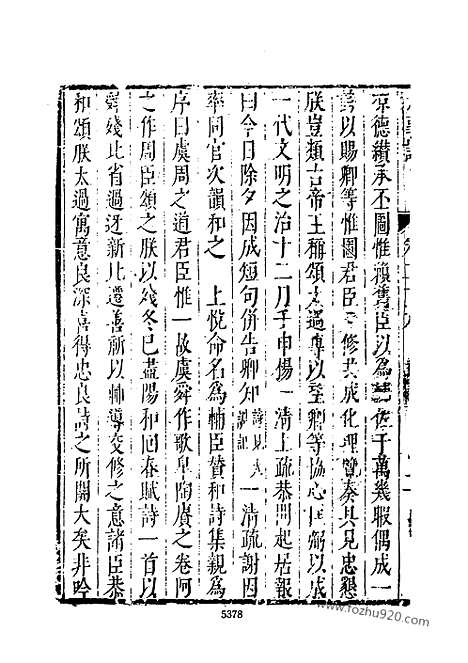 涼德纘承丕圖惟賴舊臣以為佐于萬幾暇偶成一
詩以賜卿等惟圖君臣交修共成化理覽奏具見忠懇
朕豈類古帝王稱頌太過專以望卿等協心匡弼以成
一代文明之治十二月壬申楊一清上疏恭問起居報
曰今日除夕因成短句併告卿知 一清疏謝因
率同官次韻和之 上悅命名為輔臣贊和詩集親為
序曰虞周之道君臣惟一故虞舜作歌臯陶賡之卷阿
之作周臣頌之朕以殘冬已盡陽和回春賦詩一首以
殘此省過迓新比遷善所以輔導交修之意諸臣恭
和頌朕太過寓意良深喜得忠良詩之所關大矣非吟
5378
www.fozhu920.com